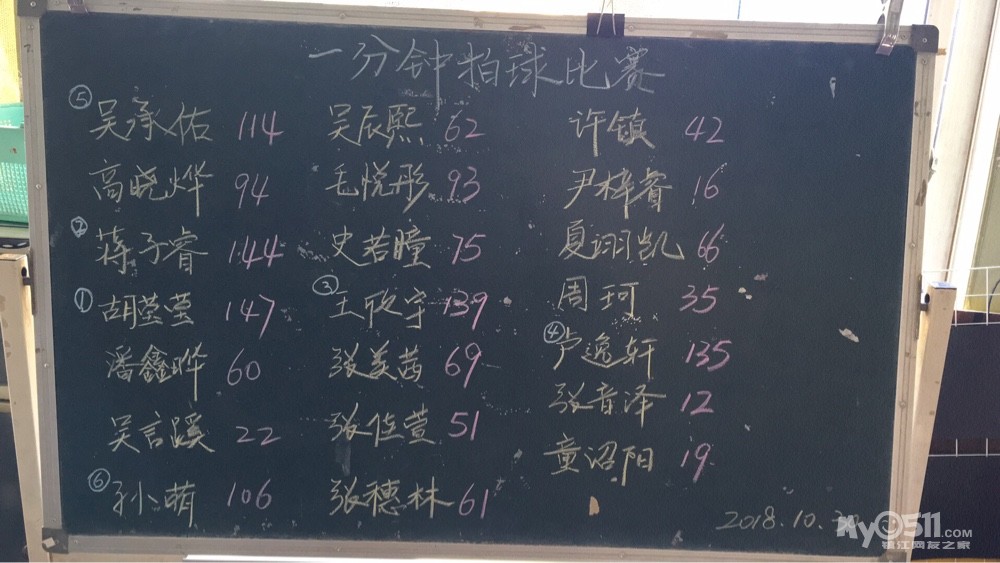 一分钟拍球比赛
⑤ 吴承佑 114 吴辰熙 62 许镇 42
高晓烨 94 毛悦彤 93 尹梓睿 16
② 蒋子睿 144 史若瞳 75 夏翊凯 66
① 胡莹莹 147 ③ 王欣宇 139 周珂 35
潘鑫晔 60 张美茜 69 ④ 卢逸轩 135
吴言蹊 22 张佳萱 51 张音泽 12
⑥ 孙小萌 106 张穗林 61 童沼阳 19
2018.10.
My0511.COM
镇江网友之家